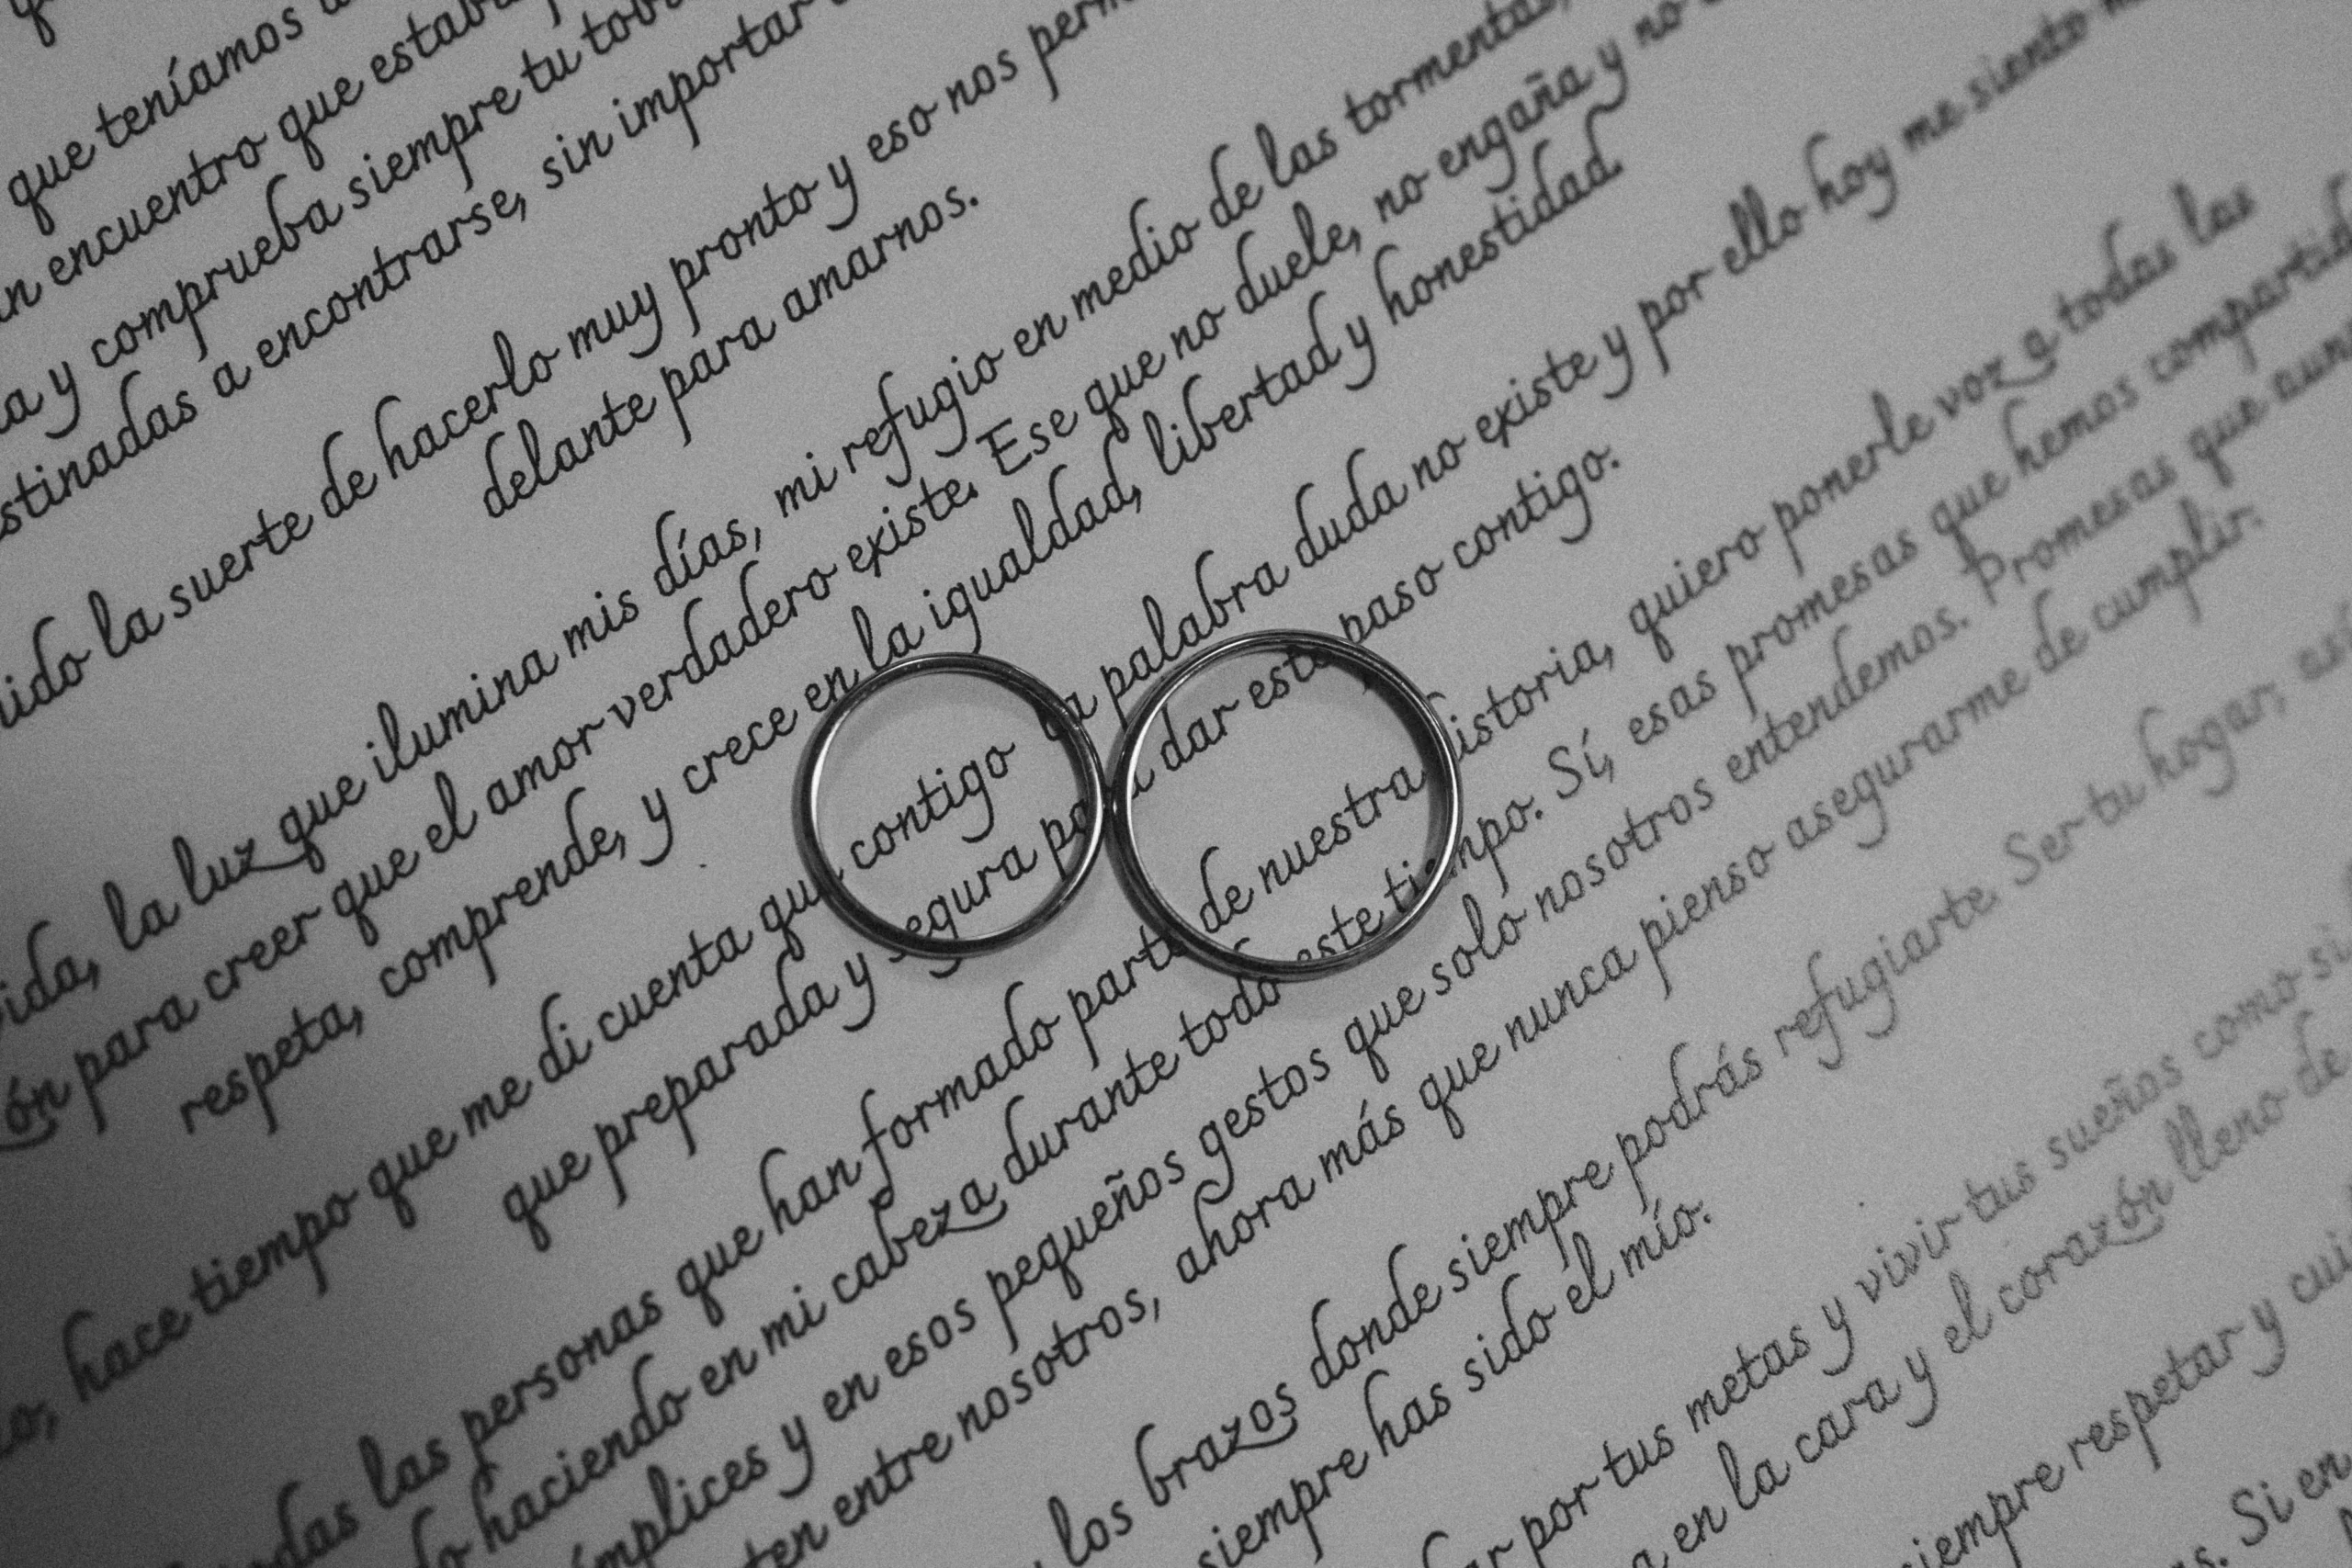 que teníamos
encuentro que
y comprueba siempre tu
a encontrarse, sin importar
la suerte de hacerlo muy pronto y eso nos
delante para amarnos.
la luz que ilumina mis días, mi refugio en medio de las tormentas,
para creer que el amor verdadero existe. Ese que no duele, no engaña y no
respeta, comprende, y crece en la igualdad, libertad y honestidad.
hace tiempo que me di cuenta que contigo la palabra duda no existe y por ello hoy me siento
que preparada y segura para dar este paso contigo.
las personas que han formado parte de nuestra historia, quiero ponerle voz a todas las
haciendo en mi cabeza durante todo este tiempo. Sí, esas promesas que hemos
y en esos pequeños gestos que solo nosotros entendemos. Promesas que
entre nosotros, ahora más que nunca pienso asegurarme de cumplir.
los brazos donde siempre podrás refugiarte. Ser tu hogar,
siempre has sido el mío.
por tus metas y vivir tus sueños como
en la cara y el corazón lleno de
siempre respetar y
Si en